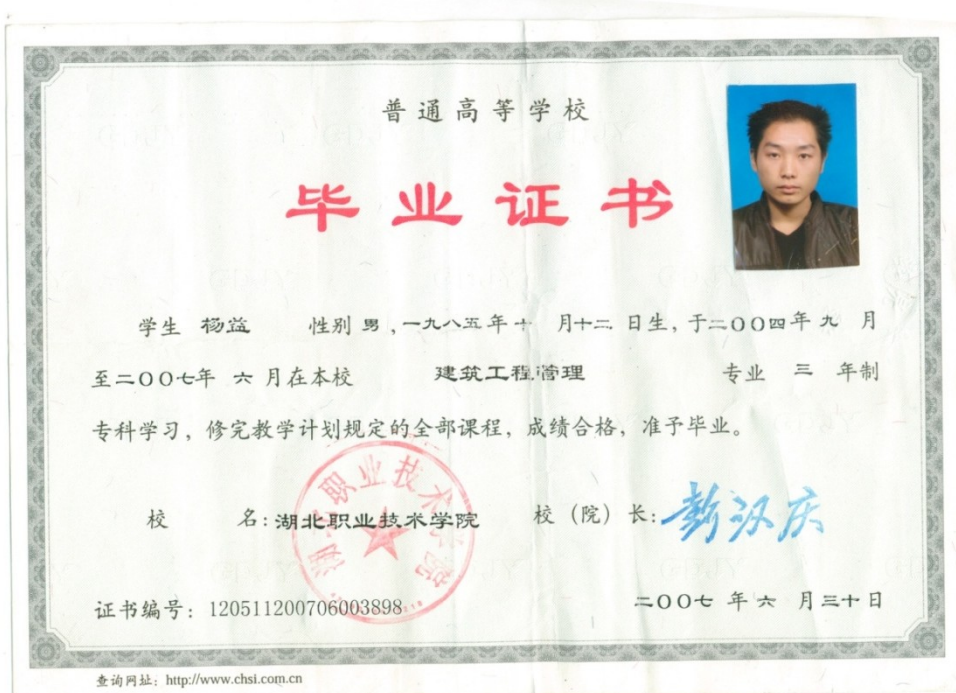 普通高等学校
毕业证书
学生 杨益 性别 男，一九八五年十 月十二 日生，于二〇〇四年九 月
至二〇〇七年 六 月在本校 建筑工程管理 专业 三 年制
专科学习，修完教学计划规定的全部课程，成绩合格，准予毕业。
校 名：湖北职业技术学院 校（院）长：彭汉庆
湖北职业技术学院
证书编号：120511200706003898 二〇〇七 年 六 月三十日
查询网址：http://www.chsi.com.cn